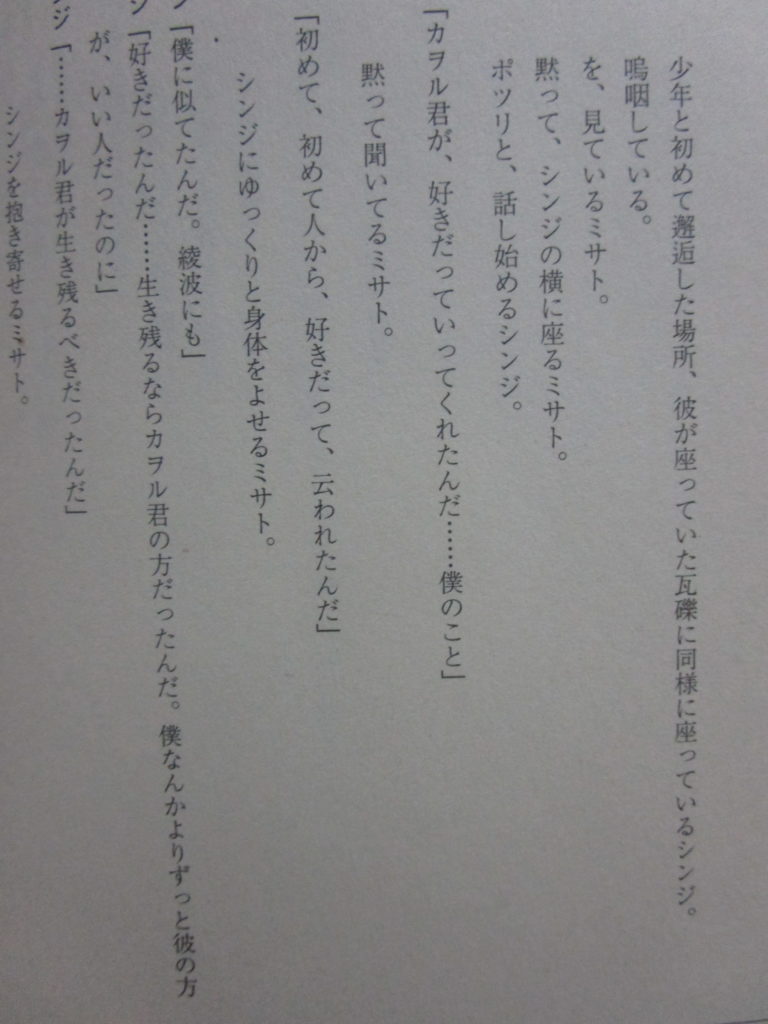 少年と初めて邂逅した場所、彼が座っていた瓦礫に同様に座っているシンジ。
嗚咽している。
を、見ているミサト。
黙って、シンジの横に座るミサト。
ポツリと、話し始めるシンジ。
「カヲル君が、好きだっていってくれたんだ……僕のこと」
黙って聞いてるミサト。
「初めて、初めて人から、好きだって、云われたんだ」
シンジにゆっくりと身体をよせるミサト。
「僕に似てたんだ。綾波にも」
ン「好きだったんだ……生き残るならカヲル君の方だったんだ。僕なんかよりずっと彼の方
が、いい人だったのに」
ンジ「……カヲル君が生き残るべきだったんだ」
シンジを抱き寄せるミサト。